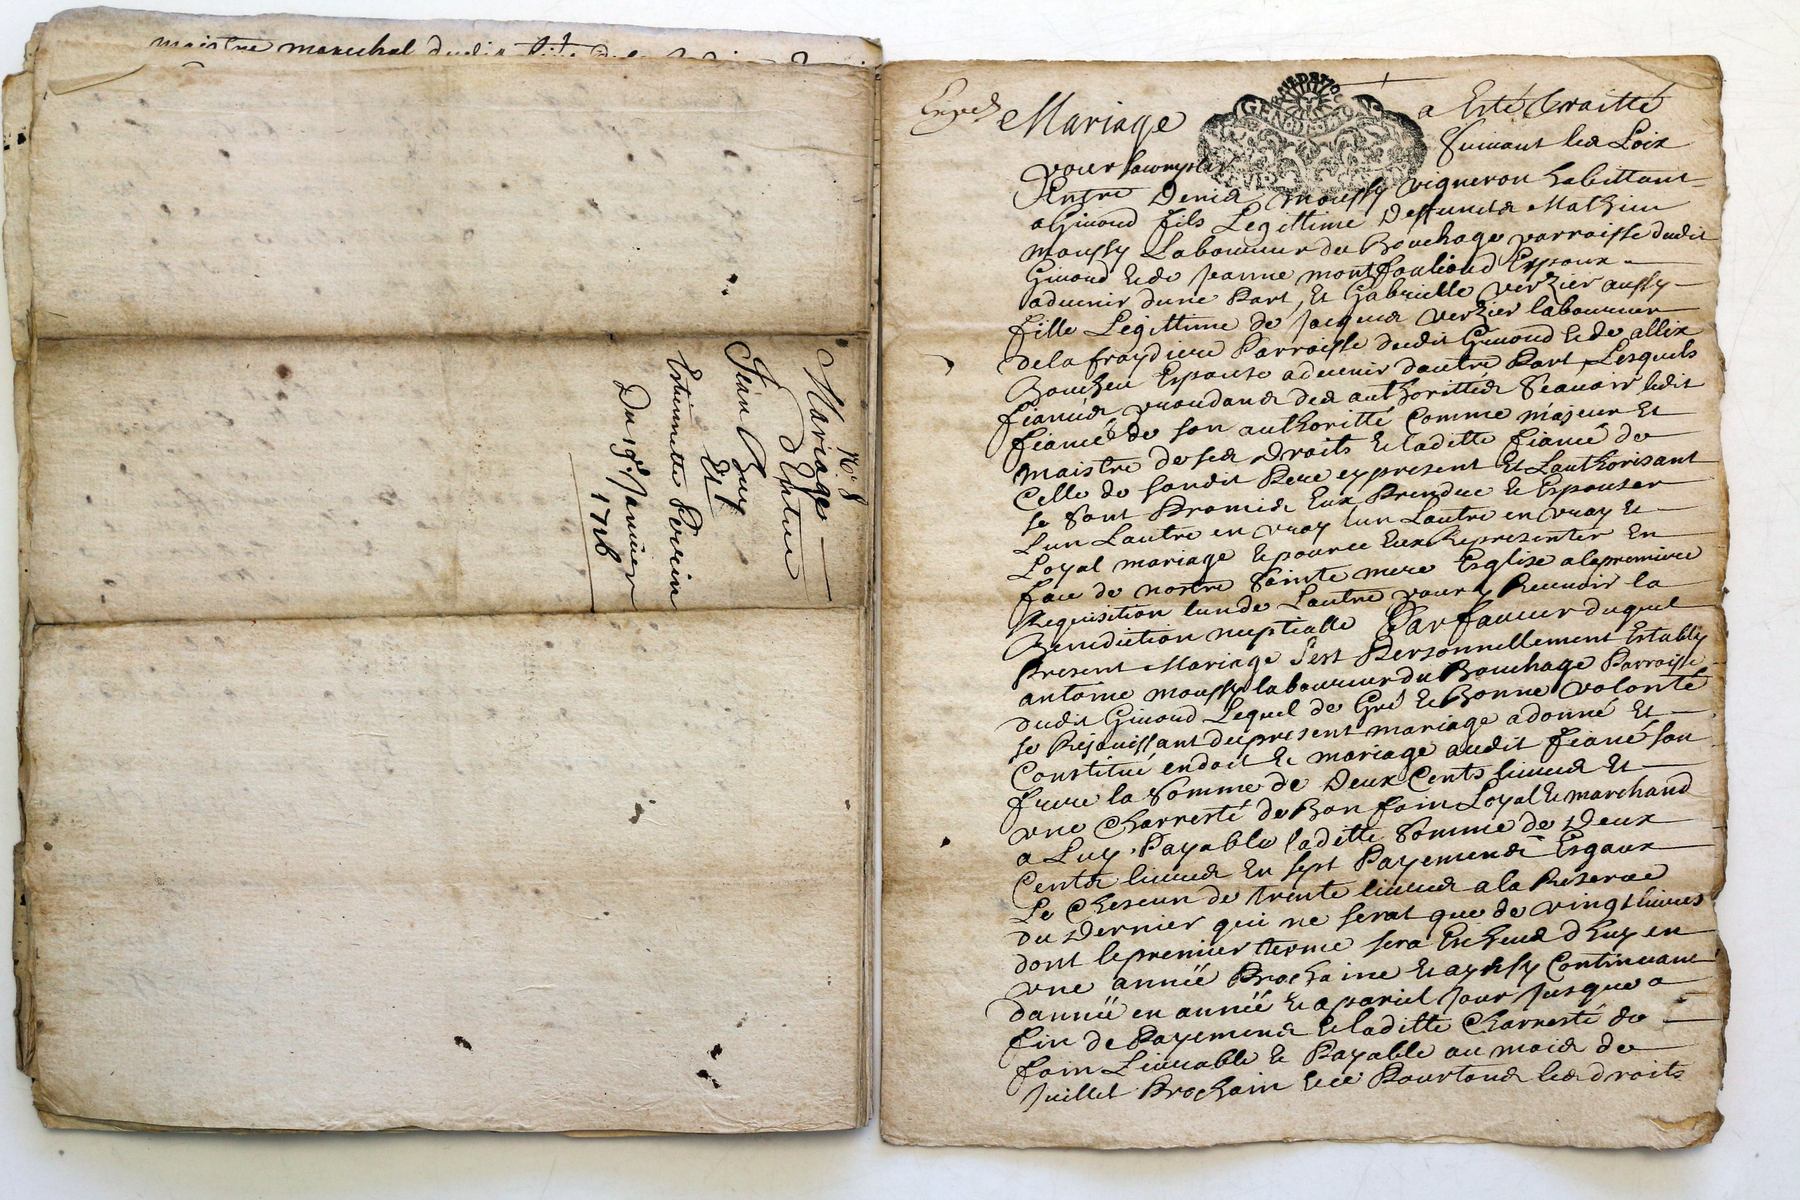 maistre mareschal dudit
N.o 8
Mariage
d'Entre
Jean Buy
Et
Estiennette Perrin
Du 19e Janvier
1716
Mariage a Esté traitté
Suivant les Loix
pour saccomplir
Entre Denis moussy vigneron habittant
a Givord fils Legittime Deffuncts Mathieu
moussy Laboureur du Bouchage parroisse dudit
Givord & de Jeanne montfouliond Expoux
aduenir dune Part, Et Gabrielle verzier aussy
fille Legittime de Jacques verzier laboureur
de la fraydiere Parroisse dudit Givord & de allix
Boucheu Espouse aduenir dautre Part Lesquels
fiancés procedans des authorittés Scauoir ledit
fiancé de son authoritté Comme majeur Et
maistre de ses Droits & laditte fiancé de
Celle de Sondit Pere cy present Et Lauthorisant
se Sont Promis Eux Prendre & Espouser
Lun Lautre en vray lun Lautre en vray Et
Loyal mariage & pource Eux Representer En
face de nostre Sainte mere Esglise a lapremiere
Requisition lun de Lautre pour y Receuoir la
Benediction nuptialle Par faueur duquel
Present Mariage s'est Personnellement Estably
antoine moussy laboureur du Bouchage Parroisse
dudit Givord Lequel de Gré & Bonne volonté
se Rejouissant du present mariage a donné Et
Constitué en dot & mariage audit fiancé son
frere la Somme de Deux Cents liures Et
une Charresté de Bon foin Loyal & marchand
a Luy Payable laditte Somme de Deux
Cents liures En sept Payements Esgaux
Le Chescun de trente liures a la Reserue
du Dernier qui ne serat que de vingt liures
dont le premier terme sera Escheus d'huy en
une année Prochaine & aynsy Continuant
dannée en année & a pariel Jour Jusque a
fin de Payement & laditte Charresté de
foin Liurable & Payable au mois de
Juillet Prochain & ce Pourtous les droits